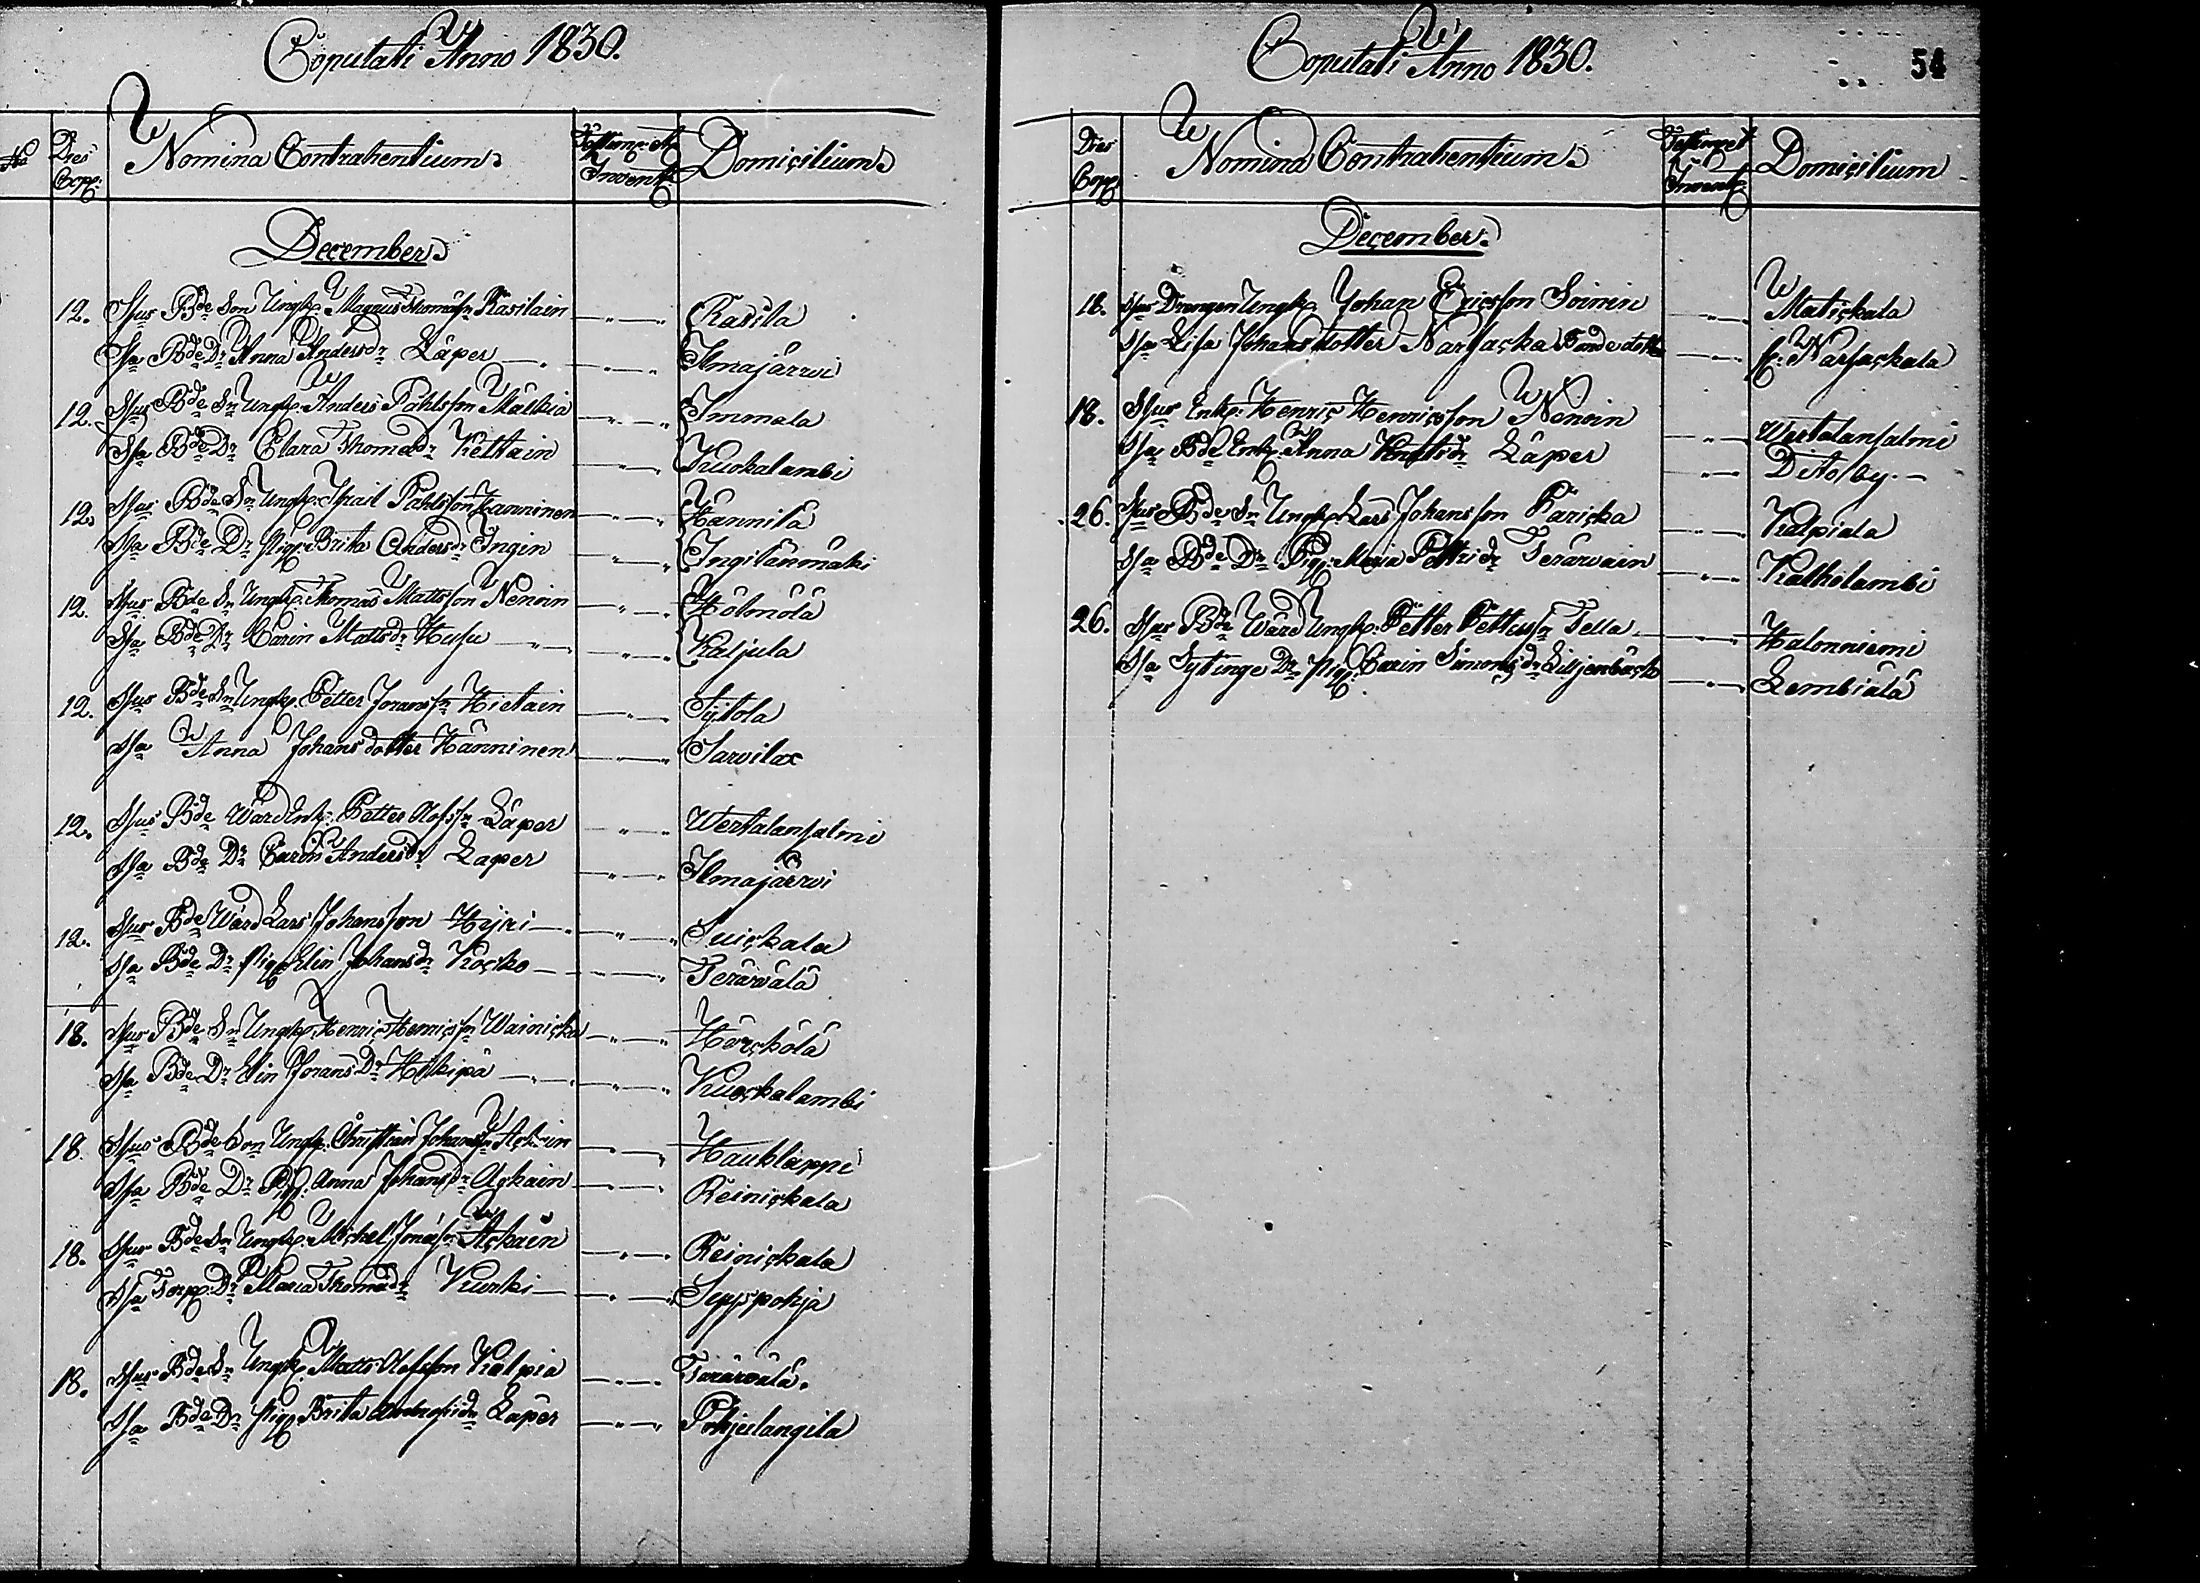 Copulati Anno 1830.
No Dies Copp: Nomina Contrahentium. Testum: et Invent: Domicilium.
December.
12. Spus Bde Son Ungk. Magnus Thomasn Rasilain Rasila
Spa Bde Dr Anna Andersdr Läper Ilmajärwi
12. Spus Bde Sn Ungk. Anders Påhlsson Mälkiä Immala
Spa Bde Dr Clara Thomædr Kettain Kuokalambi
12. Spus Bde Sn Ungk. Påhlsson Hänninen Hännilä
Spa Bde Dr Pig. Brita Andersdr Ingin Ingilänmäki
12. Spus Bde Sn Ungk. Thomas Mattsson Nenoin Hölmölä
Spa Bde Dr Carin Mattsdr Kaljula
12. Spus Bde Sn Ungk. Petter Joranssn Hietain Sÿtola
Spa Anna Johansdotter Hänninen Sarvilax
12. Spus Bde Wärd Enk. Petter Olofssn Läper Wertalansalmi
Spa Bde Dr Carin Andersdr Läper Ilmajärwi
12. Spus Bde Wärd Lars Johansson Hÿri Suickala
Spa Bde Dr Pig. Elin Johansdr Kocko Terärwälä
18. Spus Bde Sn Ungk. Henric Henricssn Wainicka Härckölä
Spa Bde Dr Elin Joransdr Hilkipä Kuockalambi
18. Spus Bde Son Ungk. Christian Johanssn Ackain Haukläppi
Spa Bde Dr Pig. Anna Johansdr Ackain Reinickala
18. Spus Bde Sn Ungk. Michel Ackain Reinickala
Spa Torp. Dr Maria Thomædr Kurki Seppspohja
18. Spus Bde Sn Ungk. Matts Olofsson Kälpiä Terärwälä.
Spa Bde Dr Pig. Brita Läper Pohjalangila
Copulati Anno 1830.
54
Dies Copp Nomina Contrahentium. Testum: et Invent: Domicilium
December.
18. Spus Drengen Ungk. Johan Ericsson Soinin Matickala
Spa Lisa Johansdotter Narsacka Bondedotter Narsackala
18. Spus Enk. Henric Henricsson Nenoin Wertalansalmi
Spa Bde Enk. Anna Knutsdr Läper Dito by.
26. Spus Bde Sn Ungk. Lars Johansson Paricka Kälpiälä
Spa Bde Dr Pig. Maria Pettersdr Terärwäin Kathilambi
26. Spus Bde Wärd Ungk. Petter Petterssn Tella Halonniemi
Spa Sytinge Dr Pig. Carin Simonsdr Liljenbäck Lembiälä